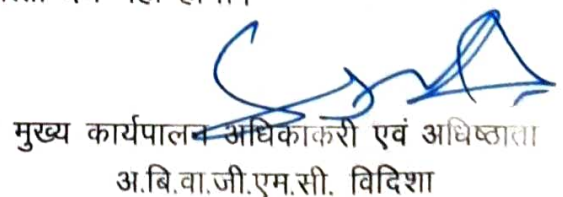 मुख्य कार्यपालन अधिकाकरी एवं अधिष्ठाता
अ.बि.वा.जी.एम.सी. विदिशा